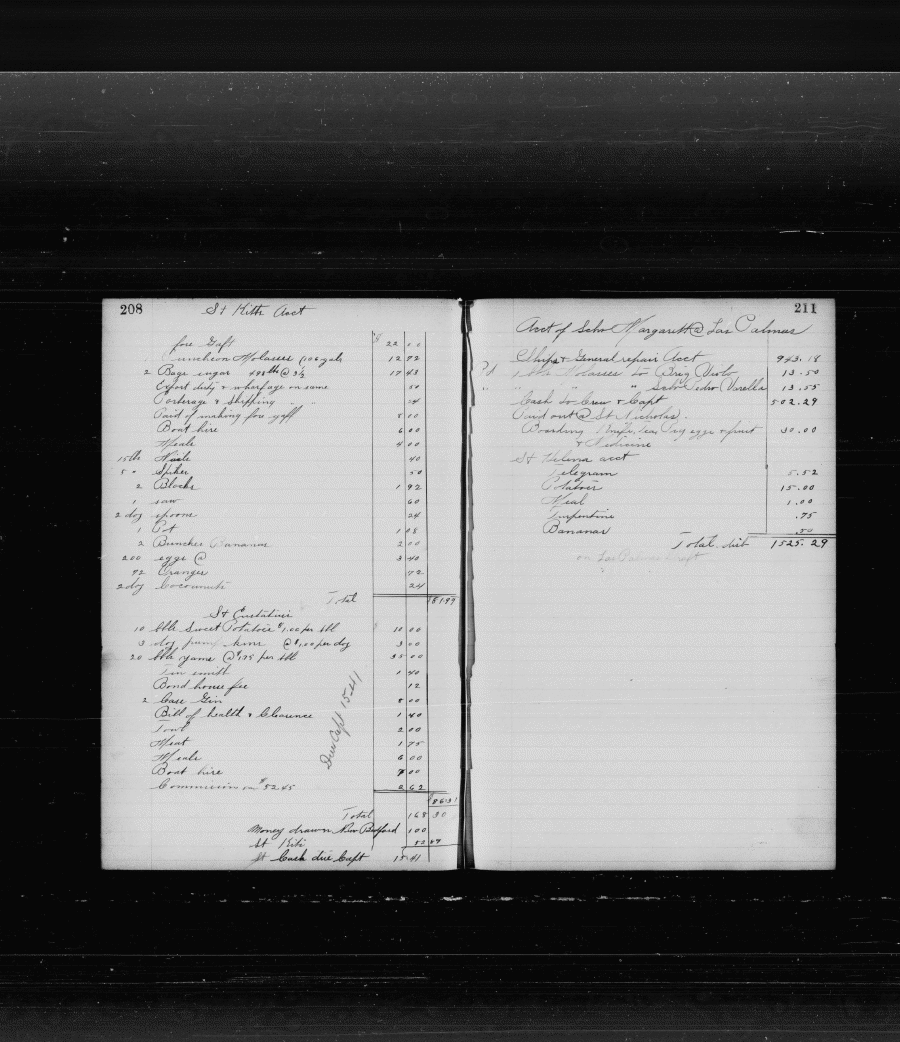 208
St Kitts Acct
fore Gaft $ 22 00
Puncheon Molasses (106 gals 12 72
2 Bags sugar @ 3½ 17 43
Export duty & wharfage on same 50
Porterage & Shipping " " 24
Paid of making fore gaff 5 00
Boat hire 6 00
Meals 4 00
15 lbs Nails 40
5 " Spikes 50
2 Blocks 1 92
1 saw 60
2 doz spoons 24
1 Pot 1 08
2 Bunches Bananas 2 00
200 eggs @ 3 40
72 Oranges 72
2 doz Cocoanuts 24
Total 81 99
St Eustatius
10 bbls Sweet Potatoes $1.00 per bbl $ 10 00
3 doz @ $1.00 per doz 3 00
20 bbls yams @ $1.75 per bbl 35 00
Tin smith 1 40
Bond house fee 12
2 Case Gin 8 00
Bill of health & Clearence 1 40
Fowl 2 00
Meat 1 75
Meals 6 00
Boat hire 7 00
Commission on $52.45 2 62
$86 31
Due Capt 15.41
Total 168 30
Money drawn New Bedford 100
St Kitts 52 89
Cash due Capt 15 41
211
Acct of Schr Margarett @ Las Palmas
Ships & General repair Acct 943.18
Pd 1 bbl Molasses to Brig 13.50
" " " " Schr Pedro Varella 13.55
Cash to Crew & Capt 502.29
Paid out @ St Nicholas.
Boarding eggs & fruit 30.00
& Medicine
St Helena acct
Telegram 5.52
Potatoes 15.00
Meal 1.00
Turpentine .75
Bananas .50
Total dist 1525.29
on Las Palmas Draft